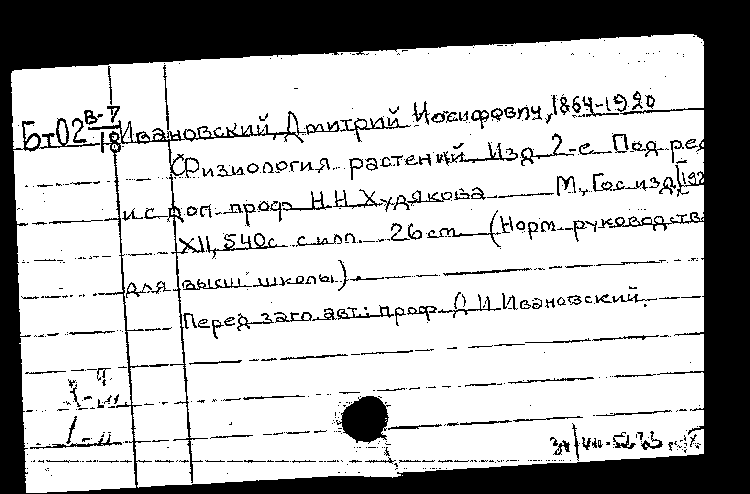 Бт02 В-7/18 Ивановский, Дмитрий Иосифович, 1864-1920
Физиология растений Изд 2-е Под ред
и с доп проф Н.Н Худякова М, Гос изд, [192
XII, 540с с илл. 26 cm (Норм руководства
для высш школы).
Перед загл. авт.: проф Д И Ивановский.